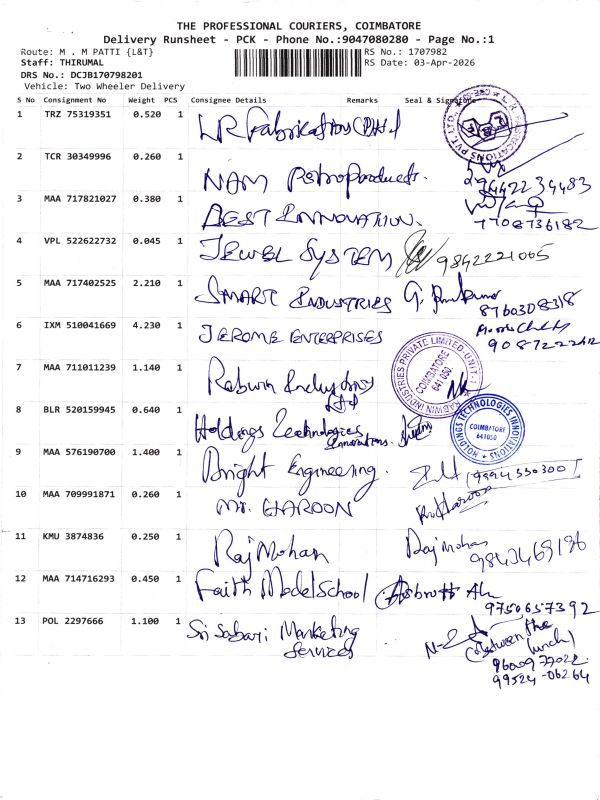 THE PROFESSIONAL COURIERS, COIMBATORE
Delivery Runsheet - PCK - Phone No.:9047080280 - Page No.:1
Route: M . M PATTI {L&T} RS No.: 1707982
Staff: THIRUMAL RS Date: 03-Apr-2026
DRS No.: DCJB170798201
Vehicle: Two Wheeler Delivery
S No Consignment No Weight PCS Consignee Details Remarks Seal & Signature
1 TRZ 75319351 0.520 1 LR Fabrications
2 TCR 30349996 0.260 1 NAM Petroproducts. 9442234483
3 MAA 717821027 0.380 1 BEST INNOVATION. 7708736182
4 VPL 522622732 0.045 1 JEWEL SYSTEM 9842221005
5 MAA 717402525 2.210 1 SMART INDUSTRIES 8760308318
6 IXM 510041669 4.230 1 JEROME ENTERPRISES
7 MAA 711011239 1.140 1 Rabwin Industries
RABWIN INDUSTRIES PRIVATE LIMITED UNIT:
COIMBATORE
641 050.
8 BLR 520159945 0.640 1 Holdings Technologies
Innovations.
HOLDINGS TECHNOLOGIES INNOVATIONS
COIMBATORE
641050
9 MAA 576190700 1.400 1 Bright Engineering. 9994550300
10 MAA 709991871 0.260 1 Mr. HAROON
11 KMU 3874836 0.250 1 Raj Mohan Raj Mohan
12 MAA 714716293 0.450 1 Faith Model School
9750657392
13 POL 2297666 1.100 1 Sri Sabari Marketing
Services
(Between the
lunch)
99524-06264